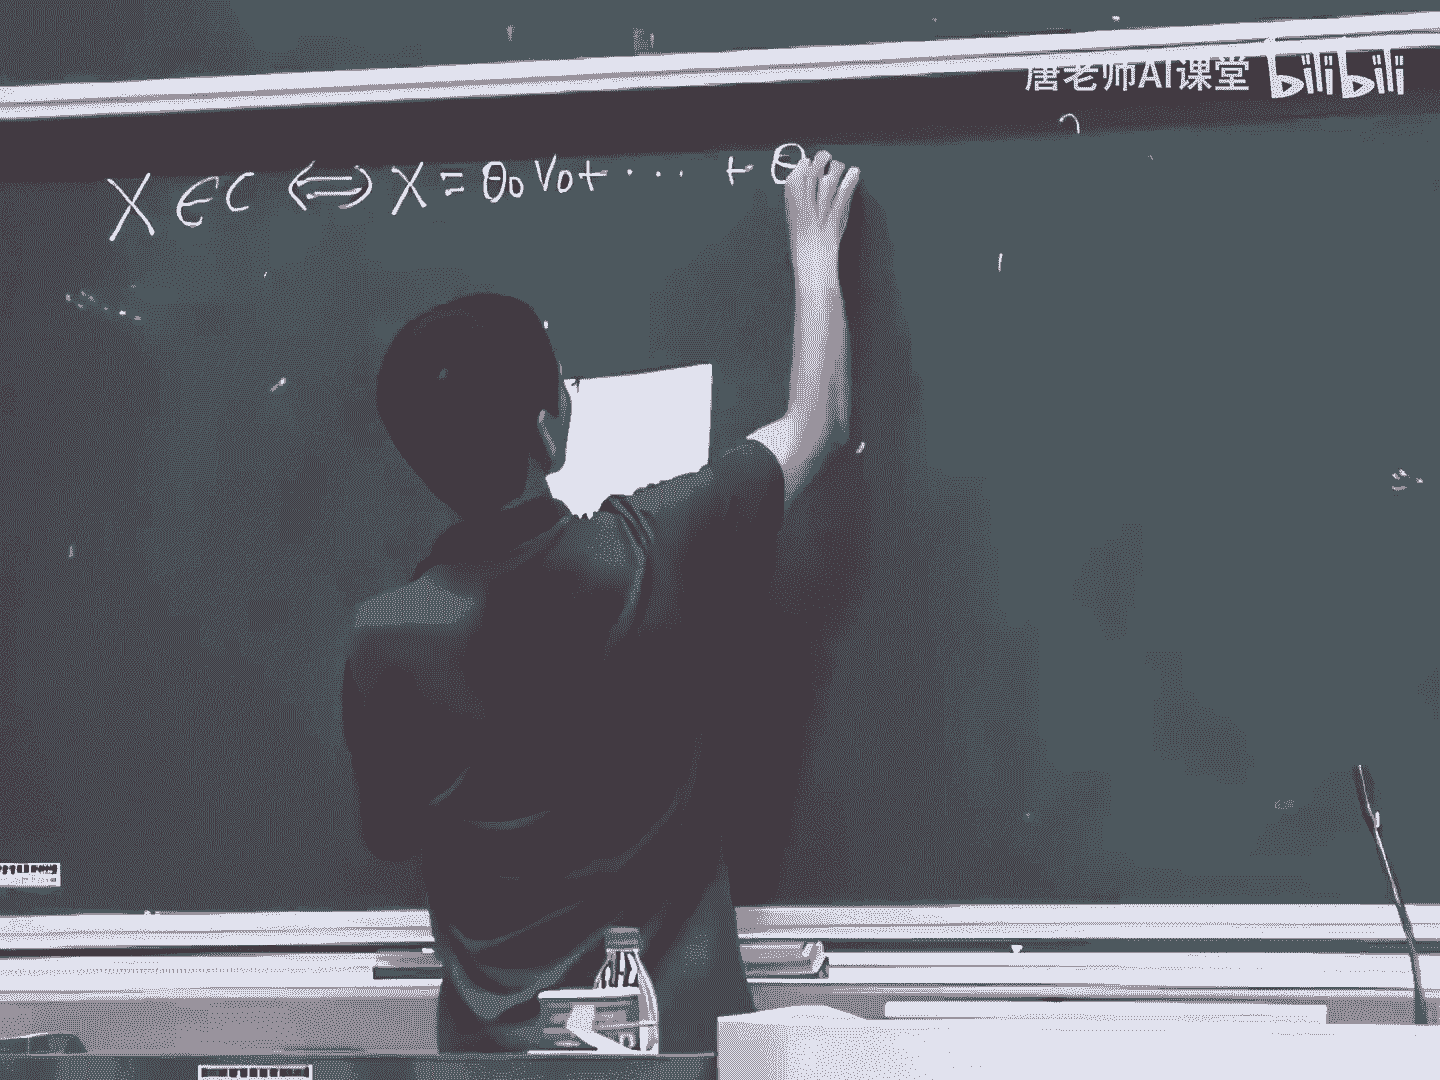 唐老师AI课堂 bilibili
X ∈ C ⟺ X = θ₀ V₀ + ··· + θ